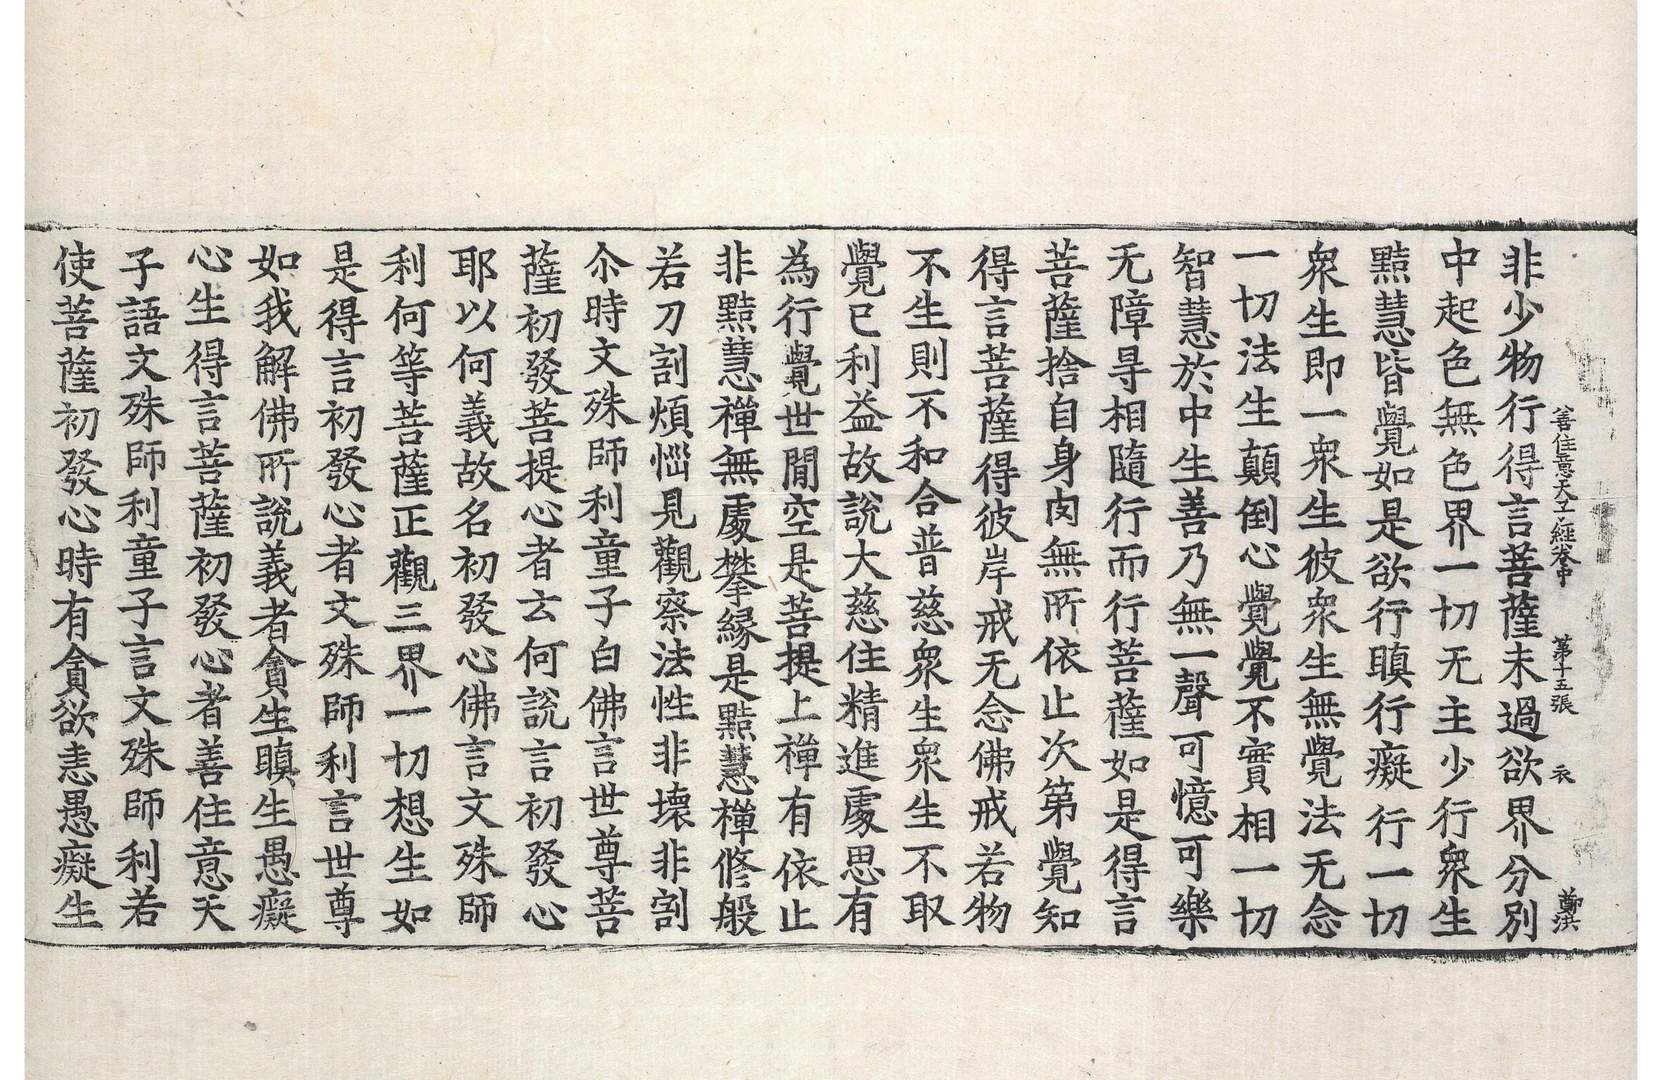 善住意天子經卷中 第十五張 衣 鄭洪
非少物行得言菩薩未過欲界分別
中起色無色界一切无主少行衆生
黠慧皆覺如是欲行瞋行癡行一切
衆生即一衆生彼衆生無覺法无念
一切法生顛倒心覺覺不實相一切
智慧於中生善乃無一聲可憶可樂
无障㝵相隨行而行菩薩如是得言
菩薩捨自身肉無所依止次第覺知
得言菩薩得彼岸戒无念佛戒若物
不生則不和合普慈衆生衆生不取
覺已利益故說大慈住精進處思有
為行覺世間空是菩提上禪有依止
非黠慧禪無處攀緣是黠慧禪修般
若刀割煩惱見觀察法性非壞非割
尒時文殊師利童子白佛言世尊菩
薩初發菩提心者云何說言初發心
耶以何義故名初發心佛言文殊師
利何等菩薩正觀三界一切想生如
是得言初發心者文殊師利言世尊
如我解佛所說義者貪生瞋生愚癡
心生得言菩薩初發心者善住意天
子語文殊師利童子言文殊師利若
使菩薩初發心時有貪欲恚愚癡生